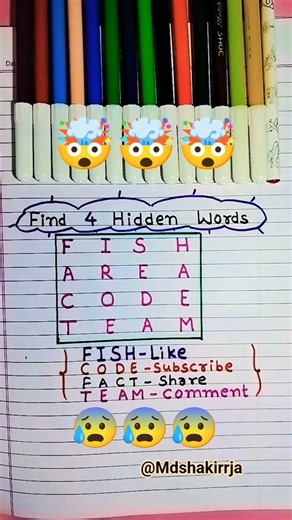 Find 4 Hidden Words
F I S H
A R E A
C O D E
T E A M
FISH-Like
CODE-Subscribe
FACT-Share
TEAM-Comment
@Mdshakirrja